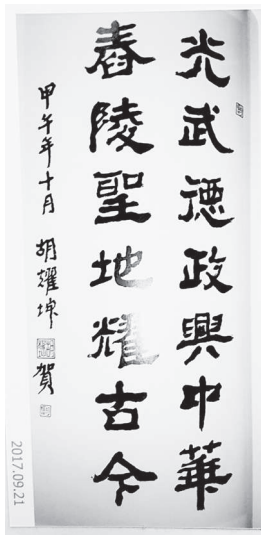 光武德政興中華
舂陵聖地耀古今
甲午年十月 胡耀坤 賀
2017.09.21